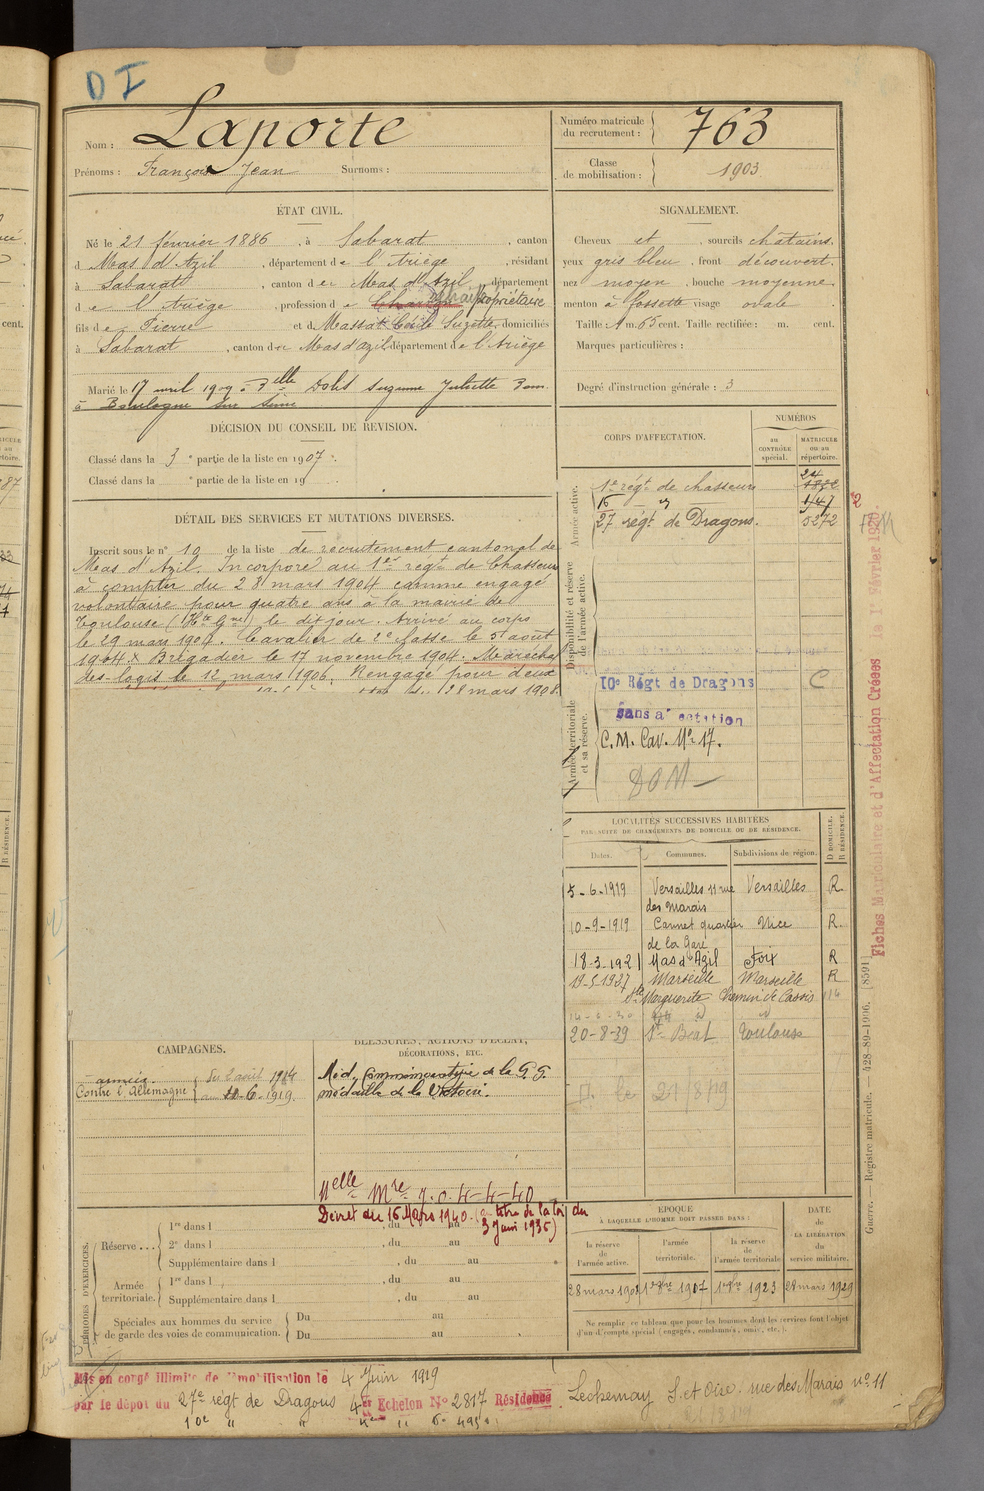 DI
Nom : Laporte
Prénoms : François Jean Surnoms :
Numéro matricule du recrutement : 763
Classe de mobilisation : 1903
ÉTAT CIVIL.
Né le 21 février 1886, à Sabarat, canton
d Mas d'Azil, département de l'Ariège, résidant
à Sabarat, canton de Mas d'Azil, département
de l'Ariège, profession de propriétaire
fils de Pierre et d Massat Suzette, domiciliés
à Sabarat, canton de Mas d'azil département de l'Ariège
Marié le 17 avril 1909 à Mlle Suzanne Juliette
à Boulogne sur Seine
SIGNALEMENT.
Cheveux et, sourcils châtains.
yeux gris bleu, front découvert.
nez moyen, bouche moyenne.
menton à fossette visage ovale
Taille : 1 m. 65 cent. Taille rectifiée : m. cent.
Marques particulières :
Degré d'instruction générale : 3
DÉCISION DU CONSEIL DE REVISION.
Classé dans la 3e partie de la liste en 1907.
Classé dans la e partie de la liste en 19
DÉTAIL DES SERVICES ET MUTATIONS DIVERSES.
Inscrit sous le n° 10 de la liste de recrutement cantonal de
Mas d'Azil. Incorporé au 1er régt de Chasseurs
à compter du 28 mars 1904 comme engagé
volontaire pour quatre ans à la mairie de
Toulouse (Hte Gne) le dit jour. Arrivé au corps
le 29 mars 1904. Cavalier de 2e classe le 5 août
1904 Brigadier le 17 novembre 1904. Maréchal
des-logis le 12 mars 1906. Rengagé pour deux
28 mars 1908.
CORPS D'AFFECTATION.
NUMÉROS
au CONTRÔLE spécial.
MATRICULE ou au répertoire.
Armée active.
1er régt de chasseurs
16 "
27 régt de Dragons. 5272
Disponibilité et réserve de l'armée active.
10e Régt de Dragons C
Armée territoriale et sa réserve.
C.M. Cav. N° 17.
DOM
LOCALITÉS SUCCESSIVES HABITÉES
PAR SUITE DE CHANGEMENTS DE DOMICILE OU DE RÉSIDENCE.
Dates. Communes. Subdivisions de région. D DOMICILE. R RÉSIDENCE.
5-6-1919 Versailles 11 rue des Marais Versailles R.
10-9-1919 Cannet quartier de la Gare Nice R.
18-3-1921 Mas d'Azil Foix R
19-5-1927 Marseille Marseille R
Ste Marguerite Chemin de Cassis 116
20-8-39 St Béat Toulouse
21/8/19
CAMPAGNES.
Contre l'Allemagne du 2 août 1914
au 10-6-1919.
BLESSURES, ACTIONS D'ÉCLAT,
DÉCORATIONS, ETC.
Méd. Commémorative de la G. G.
médaille de la Victoire.
Nelle Mre J.O. 4-4-40
Décret du 16 Mars 1940. (à titre de la loi du
3 Juin 1936)
PÉRIODES D'EXERCICES.
Réserve ...
1re dans l , du au
2e dans l , du au
Supplémentaire dans l , du au
Armée territoriale.
1re dans l , du au
Supplémentaire dans l , du au
Spéciales aux hommes du service
de garde des voies de communication.
Du au
Du au
ÉPOQUE
À LAQUELLE L'HOMME DOIT PASSER DANS :
la réserve de l'armée active.
l'armée territoriale.
la réserve de l'armée territoriale
DATE de LA LIBÉRATION du service militaire.
28 mars 1929
Ne remplir ce tableau que pour les hommes dont les services font l'objet
d'un décompte spécial (engagés, condamnés, omis, etc.).
Mis en congé illimité de démobilisation le 4 Juin 1919
par le dépôt du 27e régt de Dragons 4e Echelon N° 2817 Résidence Lechesnay S. et Oise. rue des Marais n° 11
Guerre. — Registre matricule. — 428-89-1906. [8591]
Fiches Matriculaire et d'Affectation Créées le 1er Février 1920